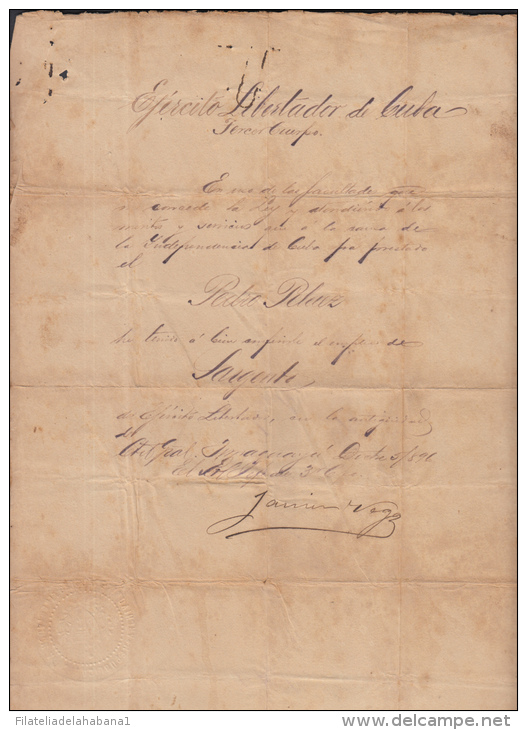 Ejército Libertador de Cuba
Tercer Cuerpo.
En uso de las facultades que
me concede la Ley y atendiendo á los
méritos y servicios que á la causa de
la Independencia de Cuba ha prestado
el
Pedro Pelaez
he tenido á bien conferirle el empleo de
Sargento,
de Ejército Libertador, con la antigüedad
del
Javier Vega
Filateliadelahabana1
www.delcampe.net